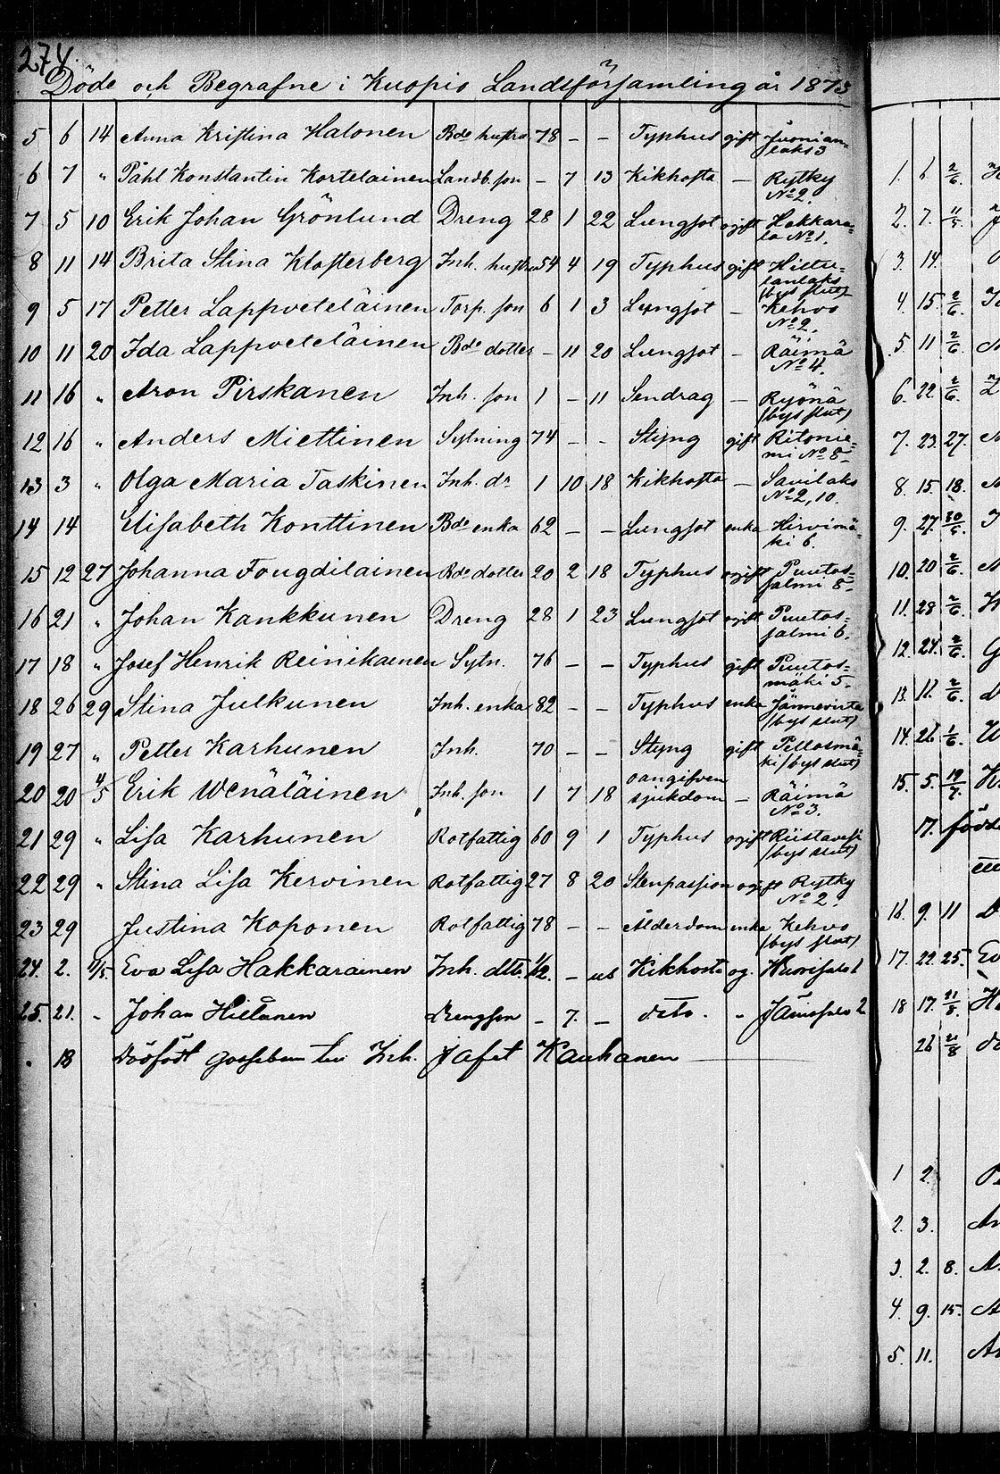 274.
Döde och Begrafne i Kuopio Landsförsamling år 1873
5 6 14 Anna Kristina Halonen Bde hustru 78 - - Typhus gift
laks 3
6 7 " Påhl Konstantin Kortelainen Landb. son - 7 13 Kikhosta - Rytky
No 2.
7 5 10 Erik Johan Grönlund Dreng 28 1 22 Lungsot ogift Hakkara=
la No 1.
8 11 14 Brita Stina Klosterberg Inh. hustru 54 4 19 Typhus gift Hiltu=
lanlaks
(bys slut)
9 5 17 Petter Lappveteläinen Torp. son 6 1 3 Lungsot - Kehvo
No 2.
10 11 20 Ida Lappveteläinen Bde dotter - 11 20 Lungsot - Räimä
No 4.
11 16 " Aron Pirskanen Inh. son 1 - 11 Sendrag - Ryönä
(bys slut)
12 16 " Anders Miettinen Sytning 74 - - Styng gift Ritonie=
mi No 8
13 3 " Olga Maria Taskinen Inh. dr 1 10 18 Kikhosta - Savilaks
No 2, 10.
14 14 Elisabeth Konttinen Bde enka 62 - - Lungsot enka Hirvimä=
ki 6.
15 12 27 Johanna Fougdilainen Bde dotter 20 2 18 Typhus ogift Puutos=
salmi 8
16 21 " Johan Kankkunen Dreng 28 1 23 Lungsot ogift Puutos=
salmi 6.
17 18 " Josef Henrik Reinikainen Sytn. 76 - - Typhus gift Puutos=
mäki 5
18 26 29 Stina Julkunen Inh. enka 82 - - Typhus enka Jännevirta
(bys slut)
19 27 " Petter Karhunen Inh. 70 - - Styng gift Pellosmä=
ki (bys slut)
20 20 4/5 Erik Wenäläinen Inh. son 1 7 18 oangifven
sjukdom - Räimä
No 3.
21 29 " Lisa Karhunen Rotfattig 60 9 1 Typhus ogift Riistavesi
(bys slut)
22 29 " Stina Lisa Kervinen Rotfattig 27 8 20 Stenpassion ogift Rytky
No 2.
23 29 Justina Koponen Rotfattig 78 - - Ålderdom enka Kehvo
(bys slut)
24. 2. Eva Lisa Hakkarainen Inh. dtr. 1/2. - Kikhosta og.
25. 21. - Johan Hiltunen Drengson - 7. - dito. -
18 Dödfödt gossebarn till Inh. Jafet Kauhanen
1. 6 2/6.
2. 7.
3. 14.
4. 15. 2/6.
5 11 2/6.
6. 22. 2/6.
7. 23. 27.
8. 15. 18.
9. 27.
10. 20 2/6.
11. 28 2/6.
12. 24. 2/6.
13. 2/6.
14. 26 1/6.
15. 5. 19/7.
17. födde
16. 9. 11
17. 22. 25. Ev
18 17.
26
1 2.
2. 3.
3. 2. 8.
4. 9. 15.
5. 11.